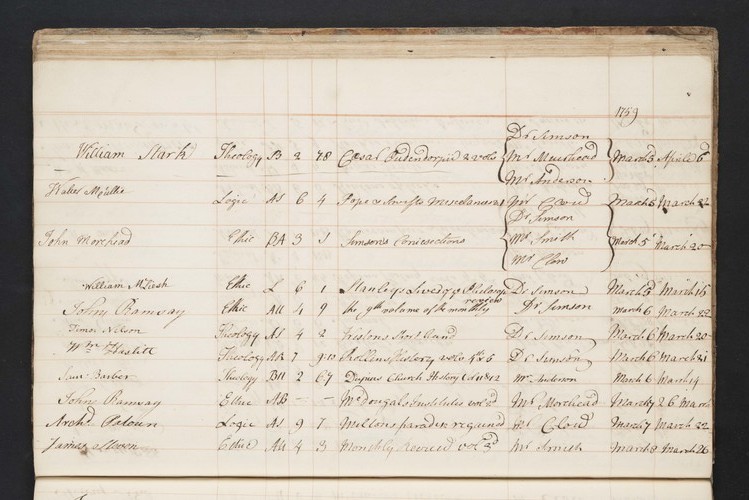 1759
Dr Simson
William Stark Theology B 2 7.8 Cæsar Oudendorpii 2 vols Mr Muirhead March 5 Aprile 6
Mr Anderson
Walter
Logic AS 6 4 Pope & Swifts Miscelanies Mr Clow March 5 March 22
Dr Simson
John Morehead Ethic BA 3 1 Simson's Conicsections Mr Smith March 5 March 20
Mr Clow
William Ethic L 6 1 Stanleys Lives of Philosop Dr Simson March 5 March 15
Johny Ramsay Ethic AU 4 9 the 9th volume of the monthly review Dr Simson March 6 March 22
Nelson Theology AS 4 2 Dr Simson March 6 March 20
Wm Hazlitt Theology AR 7 9.10 Rollins History vols 4th 5 Dr Simson March 6 March 21
Sam. Barber Theology BH 2 6.7 Dupins Church History Vol 11 & 12 Mr Anderson March 6 March 14
Johny Ramsay Ethic AB — — McDougals Institutes vol 2d Mr Morhead March 7 26 March
Archd Patoun Logic AS 9 7 Miltons paradise regained Mr Clow March 7 March 22
James Ethic AU 4 3 Monthly Review vol 3d Mr Smith March 8 March 26